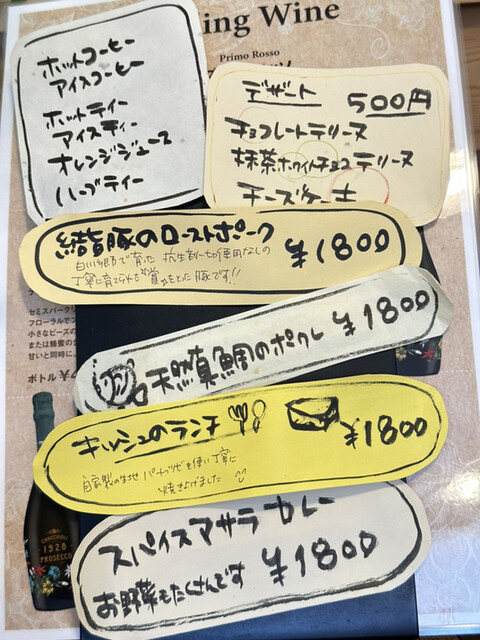 ing Wine
Primo Rosso
ホットコーヒー
アイスコーヒー
ホットティー
アイスティー
オレンジジュース
ハーブティー
デザート 500円
チョコレートテリーヌ
抹茶ホワイトチョコテリーヌ
チーズケーキ
結旨豚のローストポーク ¥1800
白川郷で育った 抗生剤一切使用なしの
丁寧に育てられた豚です!!
天然真鯛のポワレ ¥1800
キッシュのランチ ¥1800
自家製の生地 パートブリゼを使い丁寧に
焼き上げました
スパイスマサラカレー
お野菜もたくさんです ¥1800
セミスパークリ
フローラルでフ
小さなビーズの
または蜂蜜の
甘いと同時に、
ボトル ¥
1928
PROSECCO